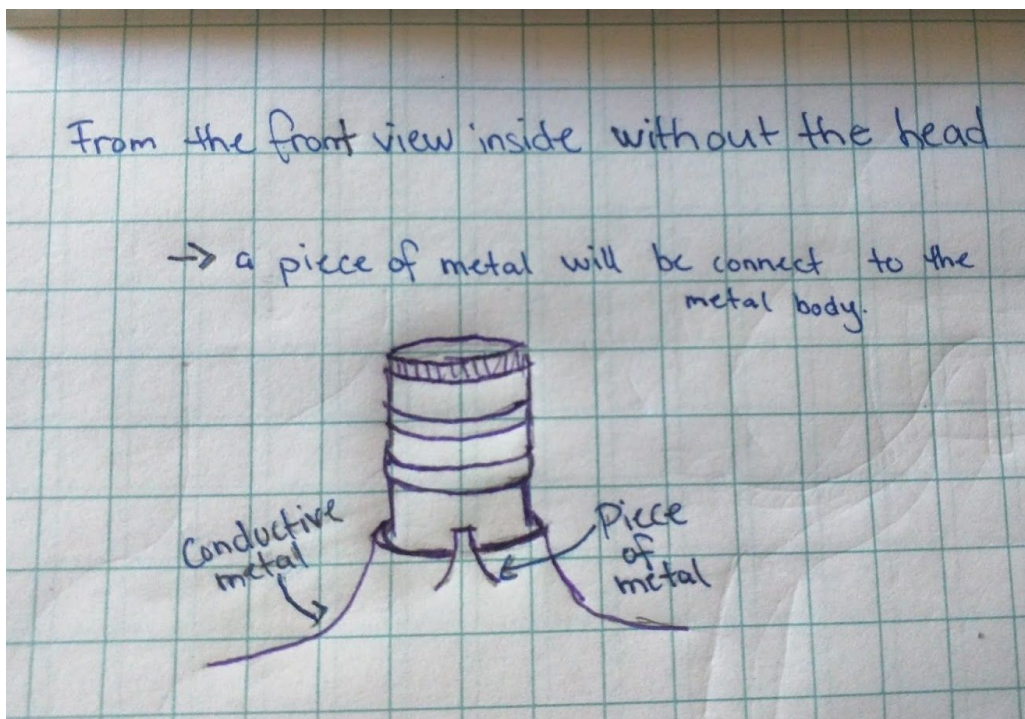 From the front view inside without the head
→ a piece of metal will be connect to the
metal body.
Conductive
metal
Piece
of
metal